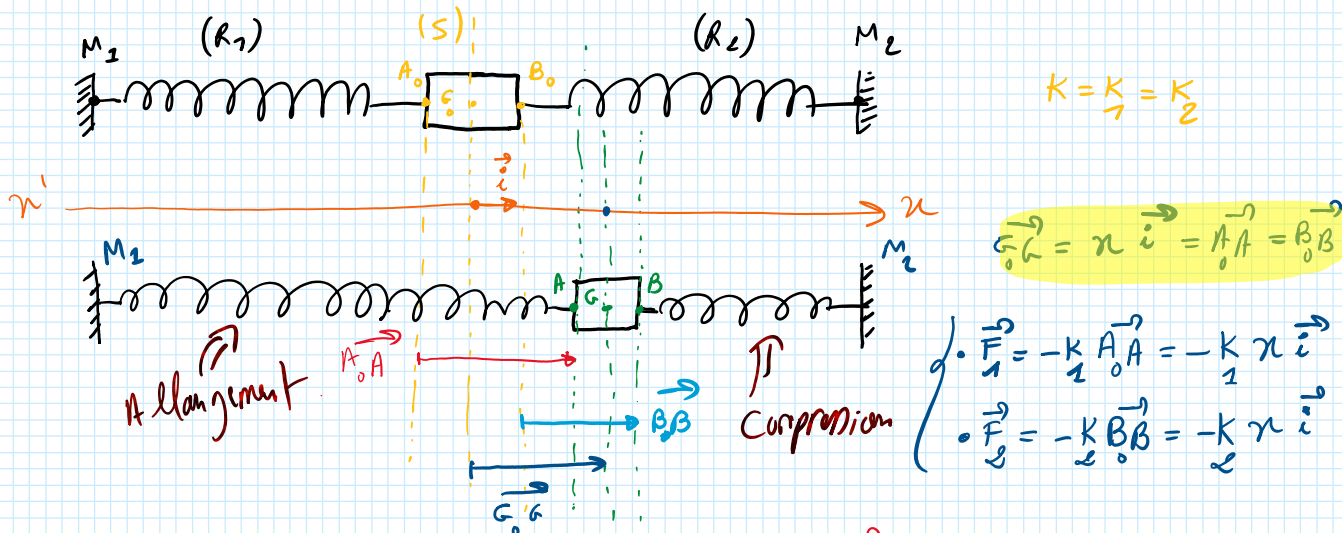 (R₁) (S) (R₂)
M₁ A₀ G₀ B₀ M₂
K = K₁ = K₂
i⃗
x' x
G₀G⃗ = x i⃗ = A₀A⃗ = B₀B⃗
M₁ A G B M₂
A₀A⃗
Allangement
B₀B⃗
Compression
G₀G⃗
• F⃗₁ = -K₁ A₀A⃗ = -K₁ x i⃗
• F⃗₂ = -K₂ B₀B⃗ = -K₂ x i⃗